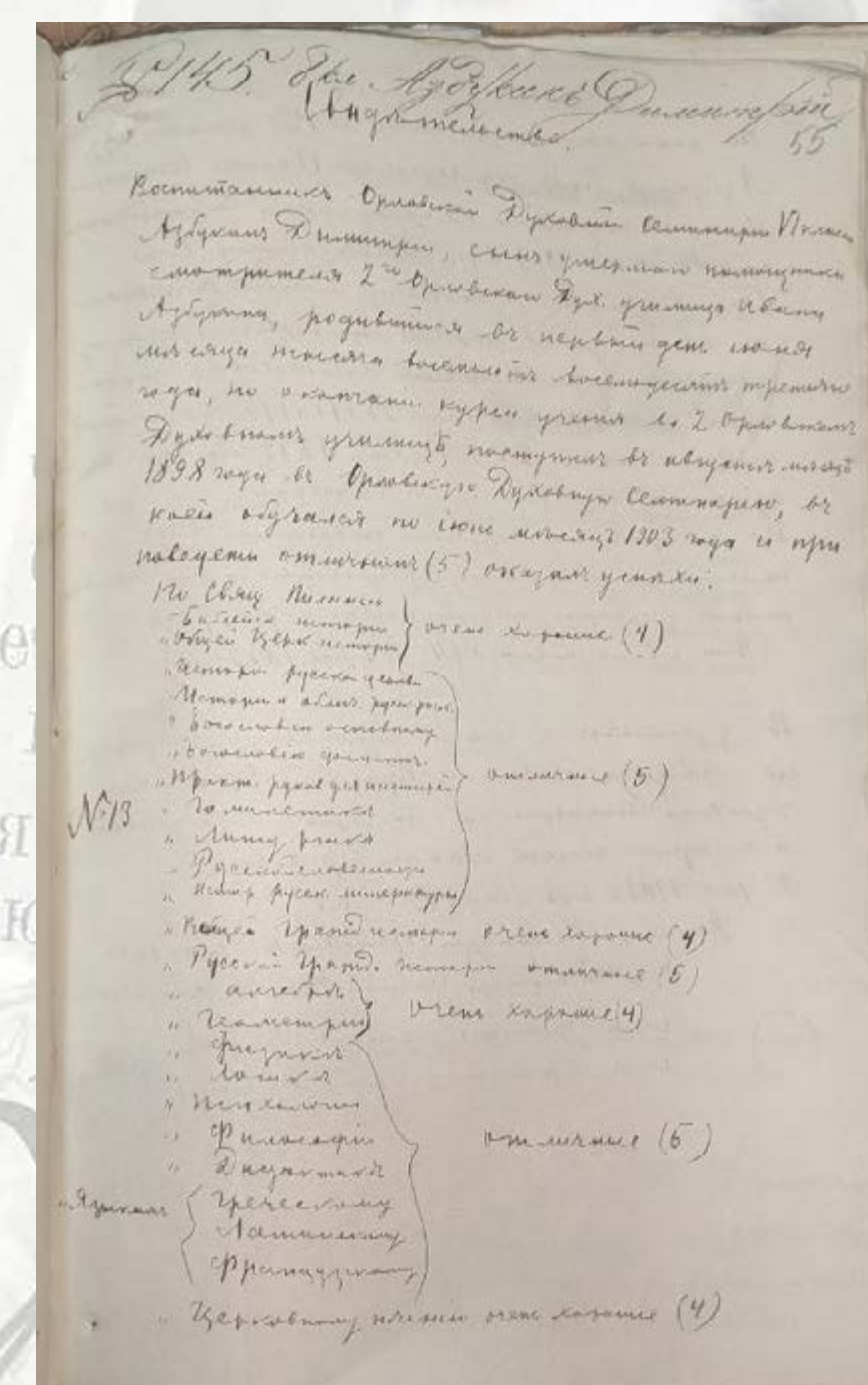 № 145. Азбукинъ Димитрій
Свидѣтельство. 55
Воспитанникъ Орловской Духовной Семинаріи VI класса
Азбукинъ Димитрій, сынъ умершаго помощника
смотрителя 2го Орловскаго Дух. училища Ивана
Азбукина, родившійся въ первый день іюня
мѣсяца тысяча восемьсотъ восемьдесятъ третьяго
года, по окончаніи курса ученія во 2 Орловскомъ
Духовномъ училищѣ, поступилъ въ августѣ мѣсяцѣ
1898 года въ Орловскую Духовную Семинарію, въ
коей обучался по іюнь мѣсяцъ 1903 года и при
поведеніи отличномъ (5) оказалъ успѣхи:
По Свящ Писанію
" Библейск исторіи очень хорошіе (4)
" Общей Церк исторіи
" Исторіи русской церкви
" Исторіи и облич. русск. раск.
" Богословію основному
" Богословію догматич.
" Практ. руков для пастырей отличные (5)
№ 13 " Гомилетикѣ
" Литургикѣ
" Русской словесности
" Истор русск. литературы
" Общей Гражд исторіи очень хорошіе (4)
" Русской Гражд. исторіи отличные (5)
" алгебрѣ
" Геометріи очень хорошіе (4)
" Физикѣ
" Логикѣ
" Психологіи
" Философіи отличные (5)
" Дидактикѣ
" Языкамъ Греческому
Латинскому
Французскому
" Церковному пѣнію очень хорошіе (4)